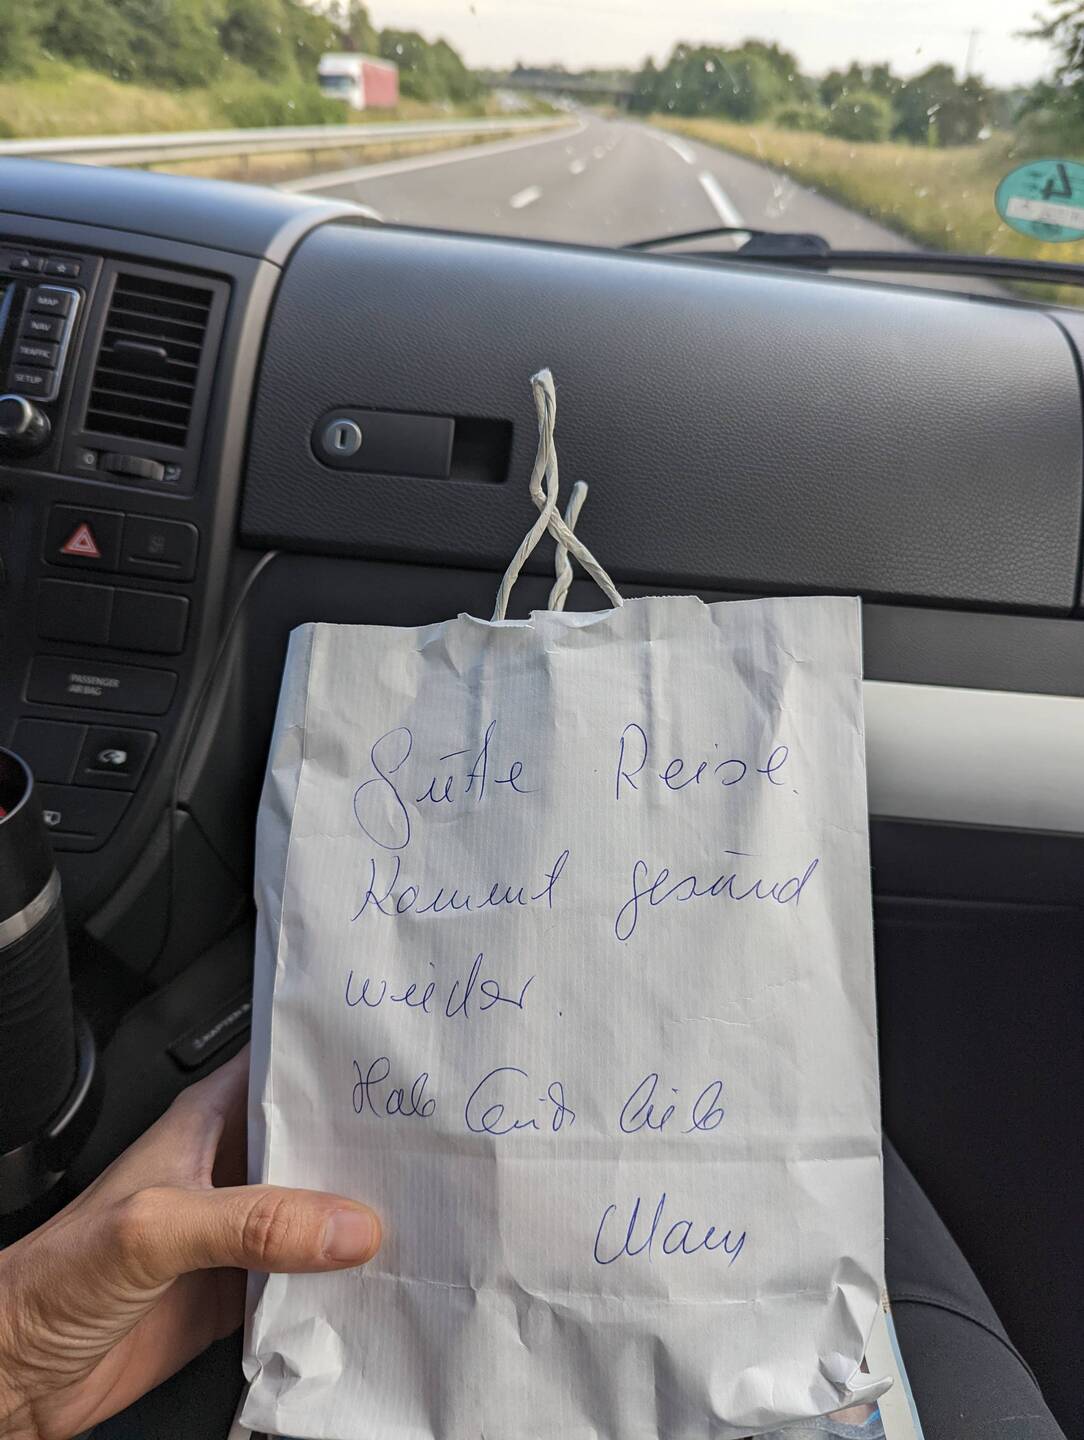 MAP
NAV
TRAFFIC
SETUP
PASSENGER
AIR BAG
4
Gute Reise.
Kommt gesund
wieder.
Hab Euch lieb
Mam